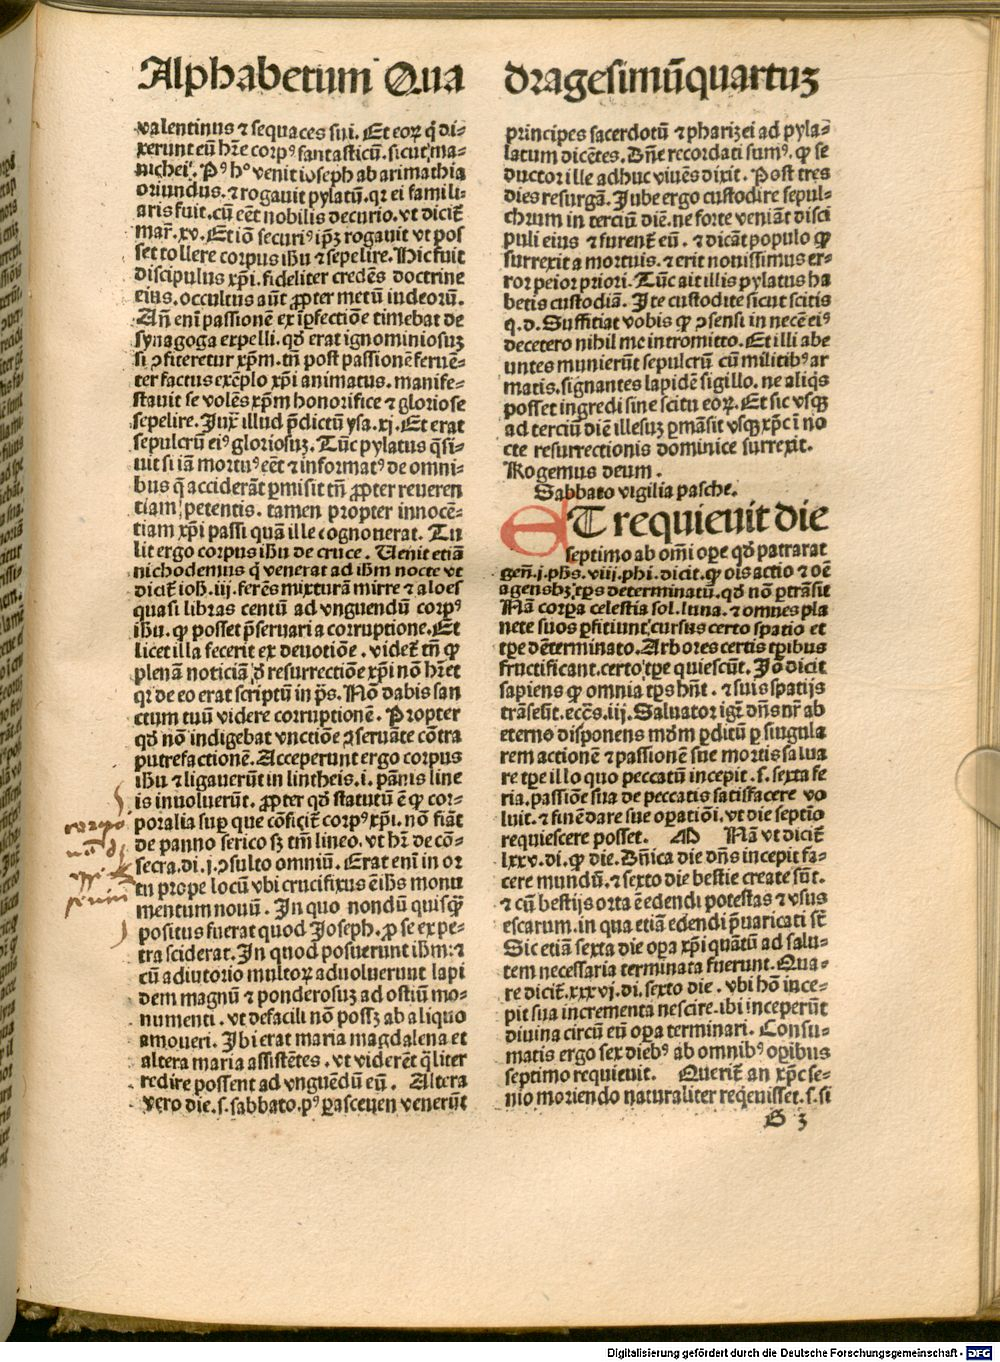 Alphabetum Qua
valentinus ⁊ sequaces sui. Et eoꝝ q̇ di⸗
xerunt eū hr̄e corpꝰ fantasticū. sicut ma⸗
nichei. Pꝰ hͦ venit ioseph ab arimathia
oriundus. ⁊ rogauit pylatū. qꝛ ei famili⸗
aris fuit. cū eēt nobilis decurio. vt dicit̄
mar̄. xv. Et iō securiꝰ ip̄ꝫ rogauit vt pos
set tollere corpus ihu ⁊ sepelire. Hic fuit
discipulus xp̄i. fideliter credēs doctrine
eius. occultus aūt ꝓpter metū iudeorū.
Añ eni passionē ex iꝑfectiōe timebat de
synagoga expelli. qḋ erat ignominiosuꝫ
si ↄfiteretur xp̄m. tñ post passionē feruē⸗
ter factus exēplo xp̄i animatus. manife⸗
stauit se volēs xp̄m honorifice ⁊ gloriose
sepelire. Jux̄ illud p̄dictū ysa. xj. Et erat
sepulcrū eiꝰ gloriosuꝫ. Tūc pylatus q̄si⸗
uit si iā mortuꝰ eēt ⁊ informatꝰ de omni⸗
bus q̄ acciderāt ꝑmisit tñ ꝓpter reueren
tiam petentis. tamen propter innocē⸗
tiam xp̄i passi quā ille cognonerat. Tu
lit ergo corpus ihu de cruce. Uenit etiā
nichodemus q̇ venerat ad ihm nocte vt
dicit̄ ioh. iij. ferēs mixturā mirre ⁊ aloes
quasi libras centū ad vnguendū corpꝰ
ihu. ꝙ posset p̄seruari a corruptione. Et
licet illa fecerit ex deuotiōe. videt̄ tñ ꝙ
plenā noticiā ḋ resurrectiōe xp̄i nō hr̄et
qꝛ de eo erat scriptū in p̄s. Nō dabis san
ctum tuū videre corruptionē. Propter
qḋ nō indigebat vnctiōe ↄseruāte cōtra
putrefactionē. Acceperunt ergo corpus
ihu ⁊ ligauerūt in lintheis. i. pānis line
is inuoluerūt. ꝓpter qḋ statutū ē ꝙ cor⸗
poralia suꝑ que cōficit̄ corpꝰ xp̄i. nō fiāt
de panno serico sꝫ tm̄ lineo. vt hr̄ de cō⸗
secra. di. j. ↄsulto omniū. Erat eni in or
tu prope locū vbi crucifixus ē ihs monu
mentum nouū. In quo nondū quisꝙ̄
positus fuerat quod Joseph. ꝓ se ex pe⸗
tra sciderat. In quod posuerunt ihm: ⁊
cū adiutorio multoꝝ aduoluerunt lapi
dem magnū ⁊ ponderosuꝫ ad ostiū mo⸗
numenti. vt defacili nō possꝫ ab aliquo
amoueri. Ibi erat maria magdalena et
altera maria assistētes. vt viderēt q̄liter
redire possent ad vnguendū eū. Altera
vero die. s. sabbato. pꝰ ꝑasceuen venerūt
dragesimūquartuꝫ
principes sacerdotū ⁊ pharizei ad pyla⸗
latum dicētes. Dn̄e recordati sumꝰ. ꝙ se
ductor ille adhuc viuēs dixit. Post tres
dies resurgā. Jube ergo custodire sepul⸗
chrum in terciū diē. ne forte veniāt disci
puli eius ⁊ furent̄ eū. ⁊ dicāt populo ꝙ
surrexit a mortuis. ⁊ erit nouissimus er⸗
ror peior priori. Tūc ait illis pylatus ha
betis custodiā. Ite custodite sicut scitis
q. d. Suffitiat vobis ꝙ ↄsensi in necē eiꝰ
decetero nihil me intromitto. Et illi abe
untes munierūt sepulcrū cū militibꝰ ar
matis. signantes lapidē sigillo. ne aliq̇s
posset ingredi sine scitu eoꝝ. Et sic vsqꝫ
ad terciū diē illesuꝫ ꝑmāsit vsqꝫ xp̄c i no
cte resurrectionis dominice surrexit.
Rogemus deum.
Sabbato vigilia pasche.
ET requieuit die
septimo ab om̄i oꝑe qḋ patrarat
gen̄. j. pħs. viij. phi. dicit. ꝙ oīs actio ⁊ oē
agens hꝫ tꝑs determinatū. qḋ nō ꝑtrāsit
Nā corꝑa celestia sol. luna. ⁊ omnes pla
nete suos ꝑfitiunt cursus certo spatio et
tꝑe determinato. Arbores certis tꝑibus
fructificant. certo tꝑe quiescūt. Jō dicit
sapiens ꝙ omnia tꝑs hn̄t. ⁊ suis spatijs
trāseūt. eccēs. iij. Saluator igr̄ dn̄s nr̄ ab
eterno disponens mḋm ꝑditū ꝑ singula
rem actionē ⁊ passionē sue mortis salua
re tꝑe illo quo peccatū incepit. s. sexta fe
ria. passiōe sua de peccatis satisfacere vo
luit. ⁊ finē dare sue oꝑatiōi. vt die septio
requiescere posset. M Nā vt dicit̄
lxxv. di. ꝙ die. Dn̄ica die dn̄s incepit fa⸗
cere mundū. ⁊ sexto die bestie create sūt.
⁊ cū bestijs orta ē edendi potestas ⁊ vsus
escarum. in qua etiā edendi p̄uaricati sūt
Sic etiā sexta die oꝑa xp̄i quātū ad salu⸗
tem necessaria terminata fuerunt. Qua⸗
re dicit̄. xxxvj. di. sexto die. vbi hō ince⸗
pit sua incrementa nescire. ibi inceperūt
diuina circū eū oꝑa terminari. Consu⸗
matis ergo sex diebꝰ ab omnibꝰ oꝑibus
septimo requieuit. Querit̄ an xp̄c se⸗
nio moriendo naturaliter req̇euisset. s. si
G 3
Digitalisierung gefördert durch die Deutsche Forschungsgemeinschaft - DFG